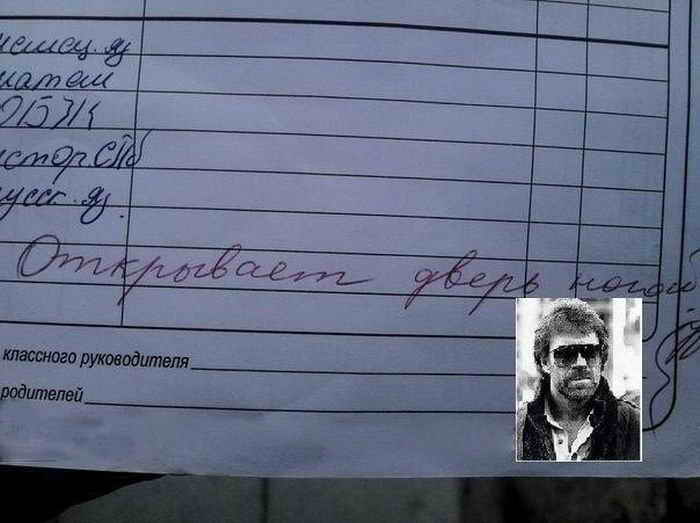 немец. яз
матем
ОБЖ
истор СПб
русск. яз.
Открывает дверь ногой
классного руководителя
родителей